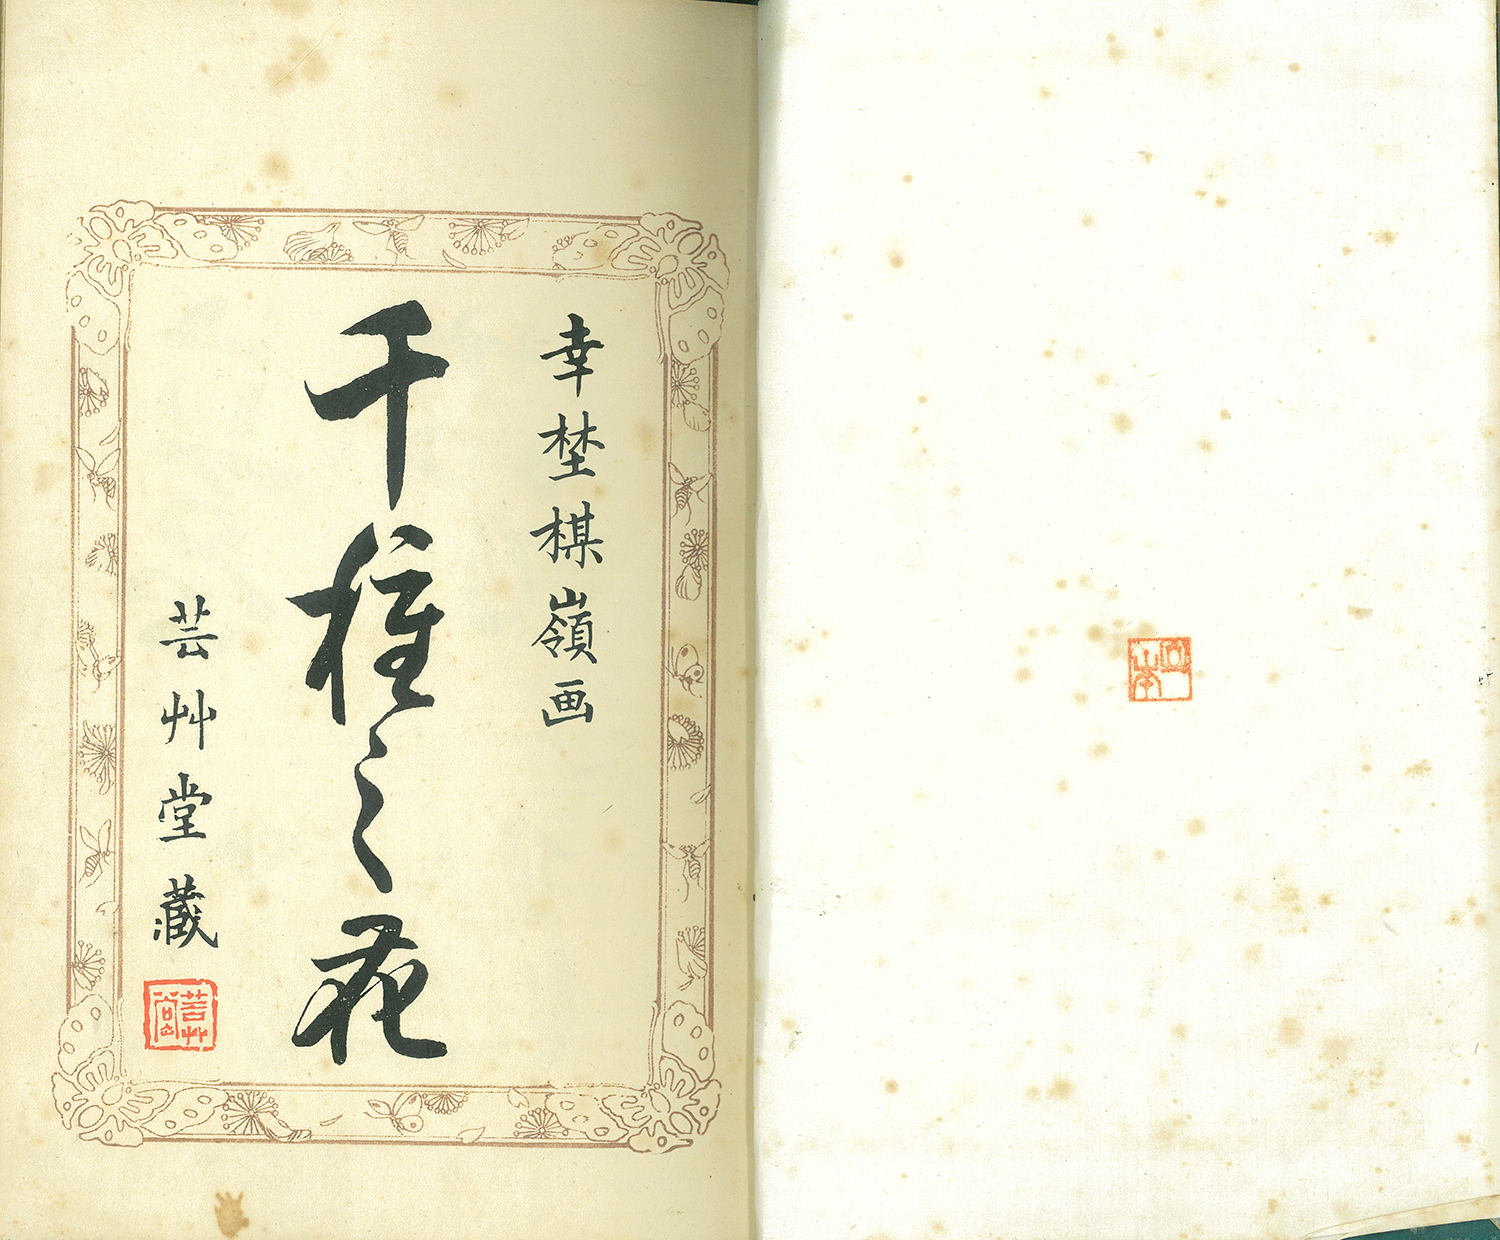 幸埜楳嶺画
千種之花
芸艸堂藏
芸艸堂